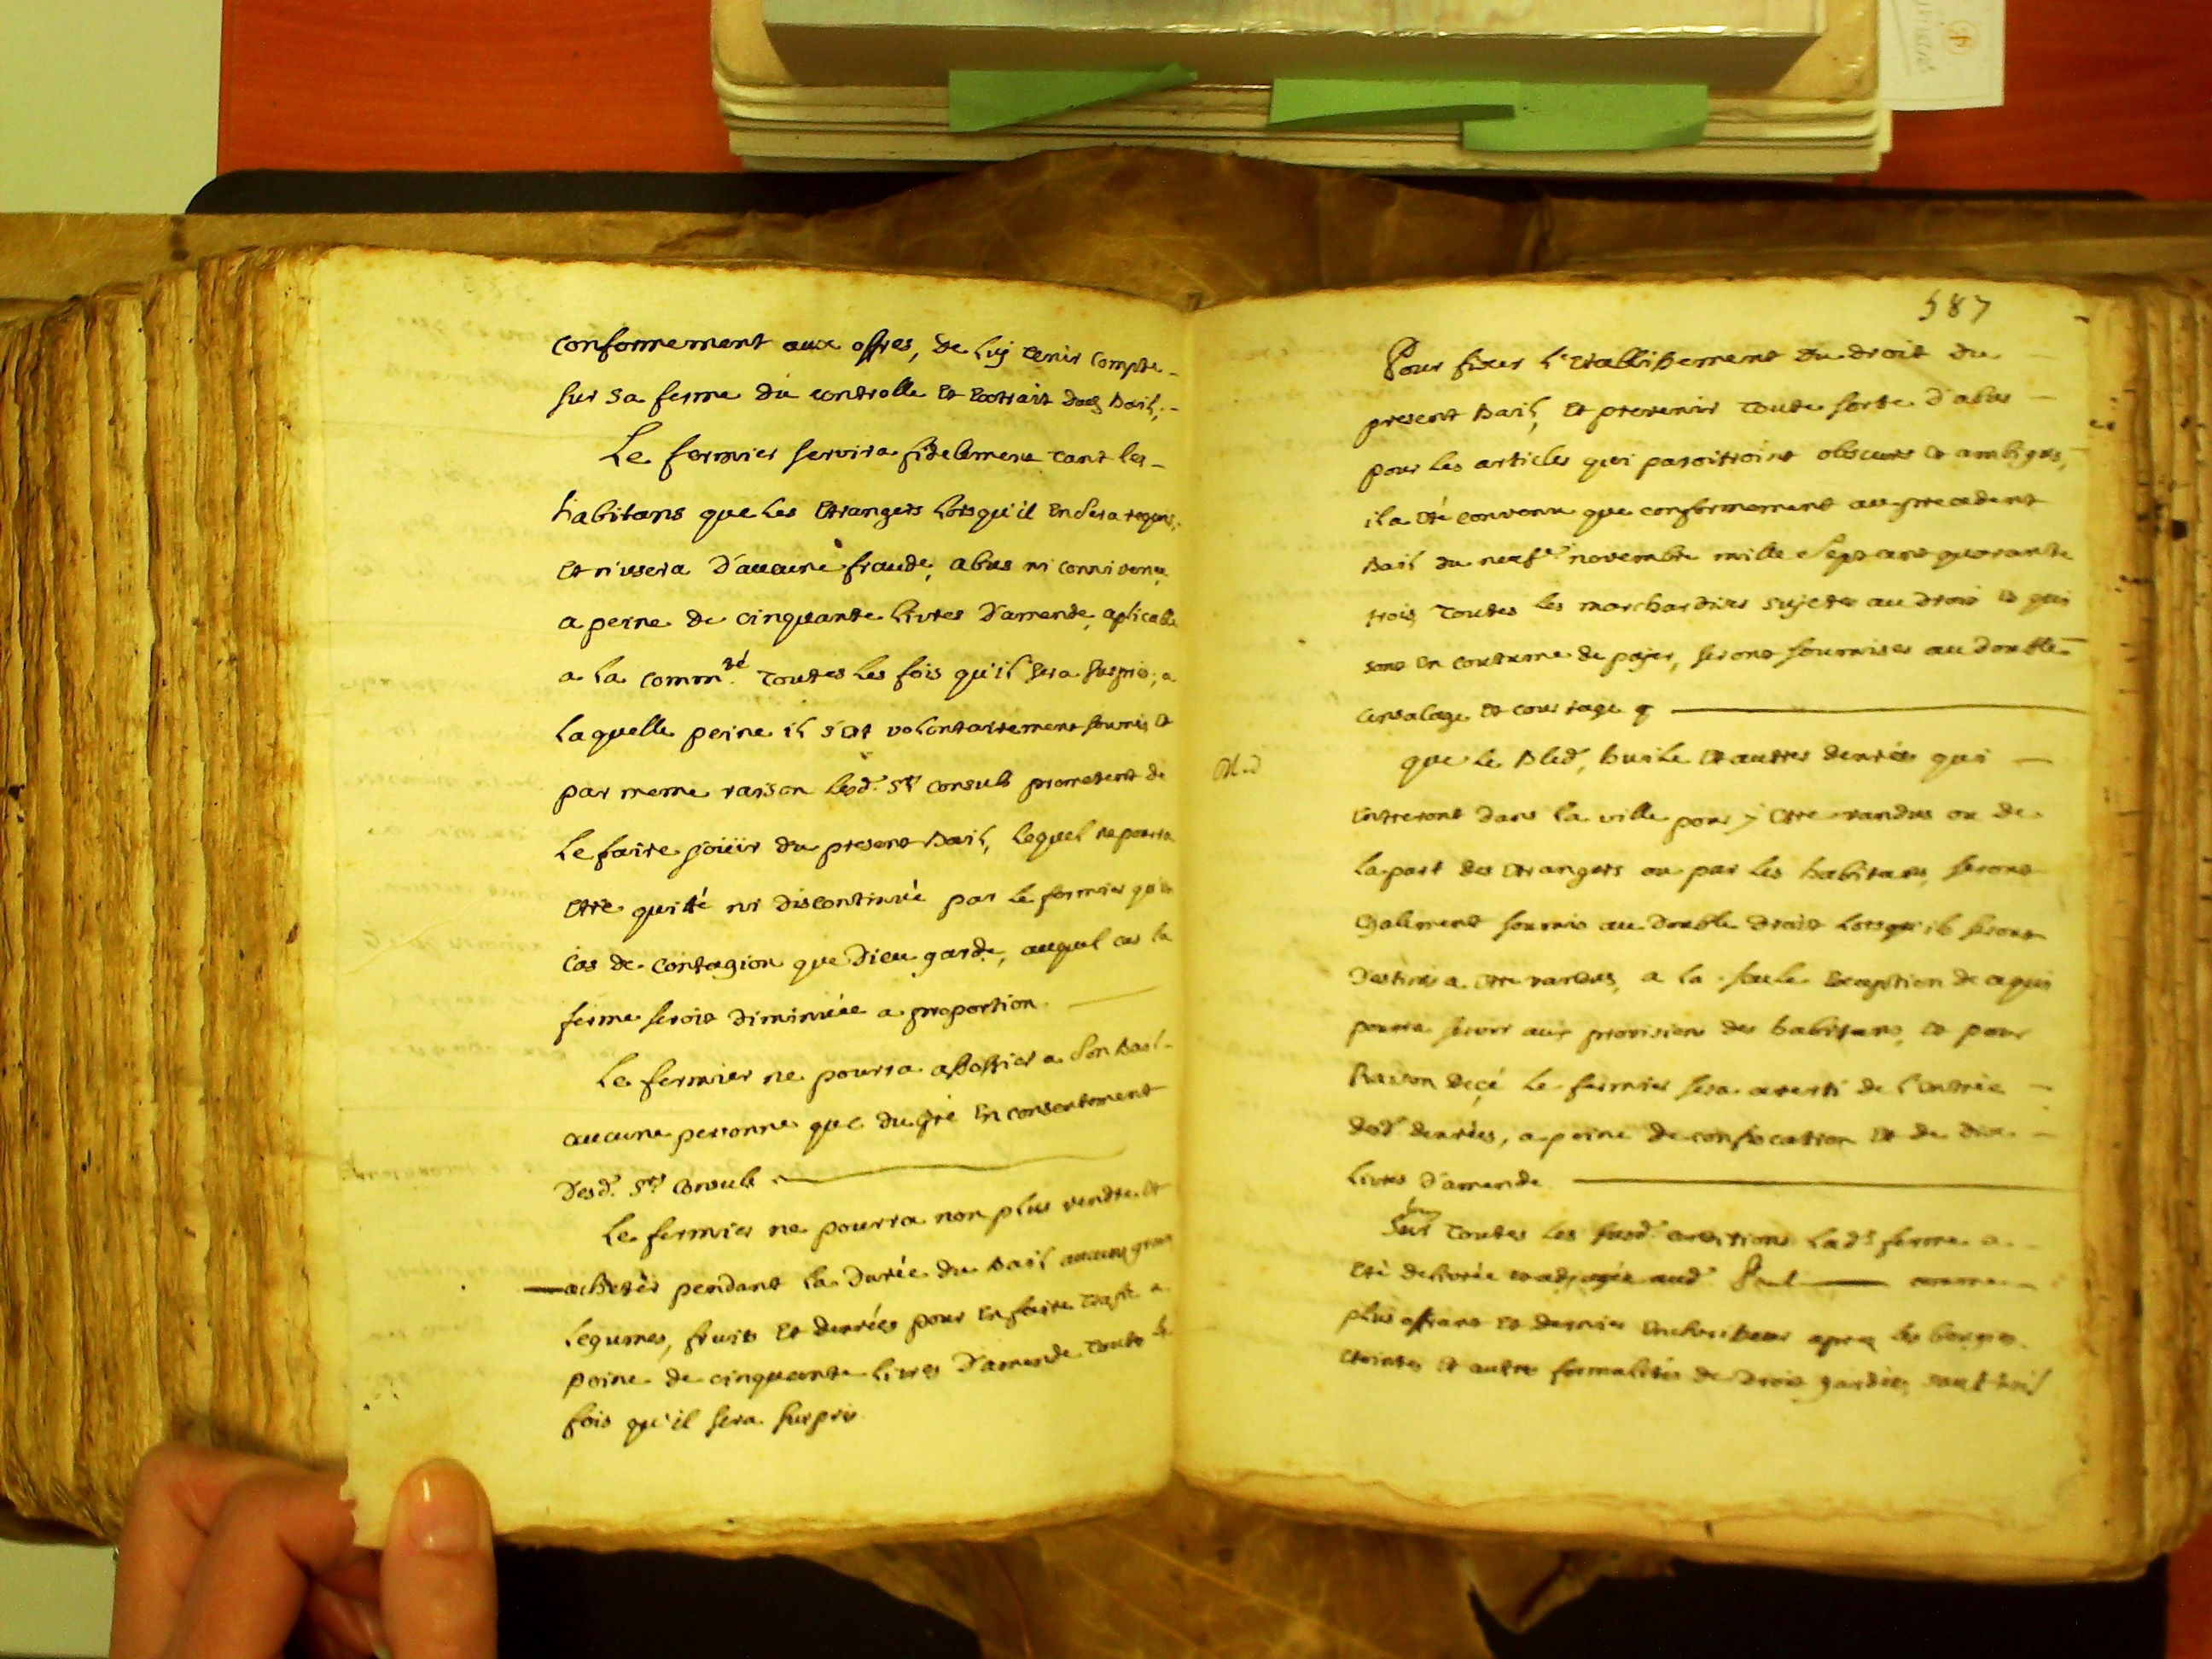 conformement aux offres, de luy tenir compte
sur sa ferme du controlle et extrait dud bail,
Le fermier servira fidelement tant les
habitans que les etrangers lorsqu'il en sera requis,
et n'usera d'aucune fraude, abus ni connivence
a peine de cinquante livres d'amende, aplicable
a la commté. toutes les fois qu'il sera surpris; a
laquelle peine il s'est volontairement soumis et
par meme raison lesd. srs consuls prometent de
le faire joüir du present bail, lequel ne pourra
etre quitté ni discontinué par le fermier qu'en
cas de contagion que dieu garde, auquel cas la
ferme seroit diminuée a proportion.
Le fermier ne pourra assossier a son bail
aucune personne que du gré en consentement
desd. srs consuls
Le fermier ne pourra non plus vendre et
acheter pendant la durée du bail aucuns grains
legumes, fruits et denrées pour en faire trafic a
peine de cinquante livres d'amende toutes les
fois qu'il sera surpris
587
Pour fixer l'etablissement du droit du
present bail, et prevenir toute sorte d'abus
pour les articles qui paroitroint obscurs et ambigus,
il a été convenu que conformement au precedent
bail du neufe novembre mille sept cent quarante
trois, toutes les marchandises sujetes au droit et qui
sont en coutume de payer, seront soumises au double
censalage et courtage
que le bled, huile et autres denrées qui
entreront dans la ville pour y etre vandus ou de
la part des etrangers ou par les habitans, seront
egalement soumis au double droit lorsqu'ils seront
destinés a etre vandus, a la seule exception de ce qui
pourra servir aux provisions des habitans, et pour
raison de çé le fermier sera averti de l'entrée
desd. denrées, a peine de confiscation et de dix
livres d'amende
Sur toutes les susd. conditions lade ferme a
eté delivrée et adjugée aud Paul comme
plus offrant et dernier encherisseur apres les bougies
eteintes et autres formalités de droit gardées,